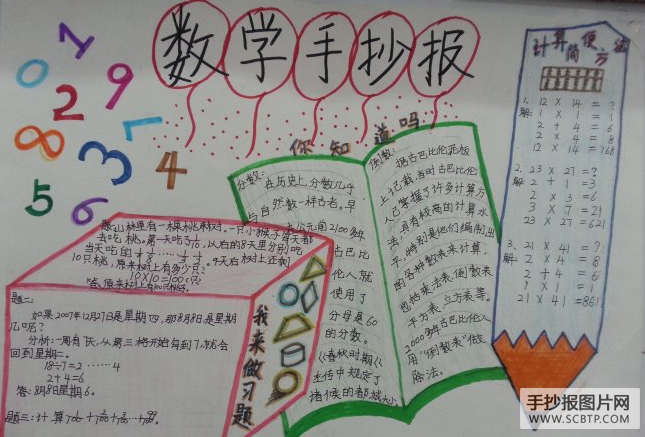 数学手抄报
你知道吗
计算简便方法
1
0
9
2
8
7
3
4
5
6
1.
12 × 14 = ?
解: 1 × 1 = 1
2 + 4 = 6
2 × 4 = 8
12 × 14 = 168
2.
23 × 27 = ?
解: 2 + 1 = 3
2 × 3 = 6
3 × 7 = 21
23 × 27 = 621
3.
21 × 41 = ?
解: 2 × 4 = 8
2 + 4 = 6
1 × 1 = 1
21 × 41 = 861
分数:
在历史上,分数几乎
与自然数一样古老。早
在公元前2100多年
古巴比
伦人就
使用了
分母是60
的分数。
《春秋时期《
左传中规定了
诸侯的都城
倒数:
据古巴比伦泥板
上记载,当时古巴比伦
人已掌握了许多计算方
法,具有较高的计算水
平,特别是他们编制出
的各种数表来计算,
也拈乘法表,倒数表
平方表,立方表等。
2000多年古巴比伦人
用“倒数表”做法
除法。
题一:山林里有一棵桃树,一只小猴子每天都
去吃桃。第一天吃了1/10,以后的8天里分别吃
当天吃的
10只桃,原来树上有多少只?
10×10=100(只)
答:原来树上有100只桃。
题二:
如果2007年12月27日是星期四,那8月8日是星期
几呢?
分析:一周有7天,从第三格开始勾到7,就会
回到星期二。
18÷7=2……4
2+4=6
答:8月8日星期6。
题三:计算
我来做习题
手抄报图片网
WWW.SCBTP.COM